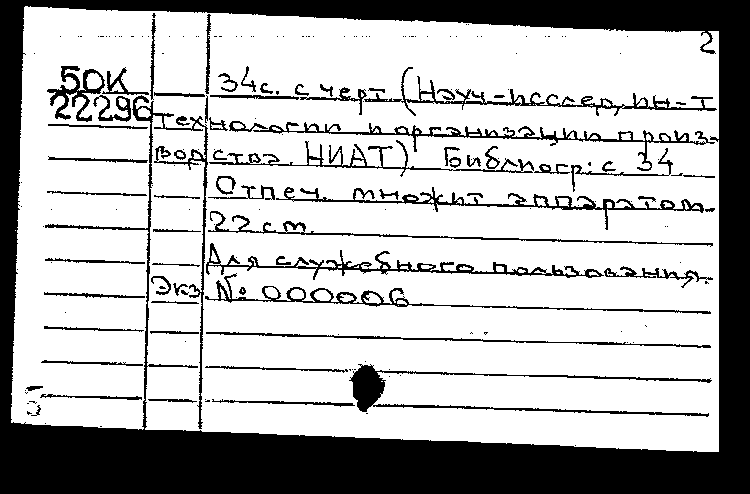 2
50К 34с. с черт (Науч-исслед, ин-т
22296 технологии и организации произ-
водства. НИАТ). Библиогр: с. 34
Отпеч. множит аппаратом
22 cm.
Для служебного пользования.
Экз. № 000006
5